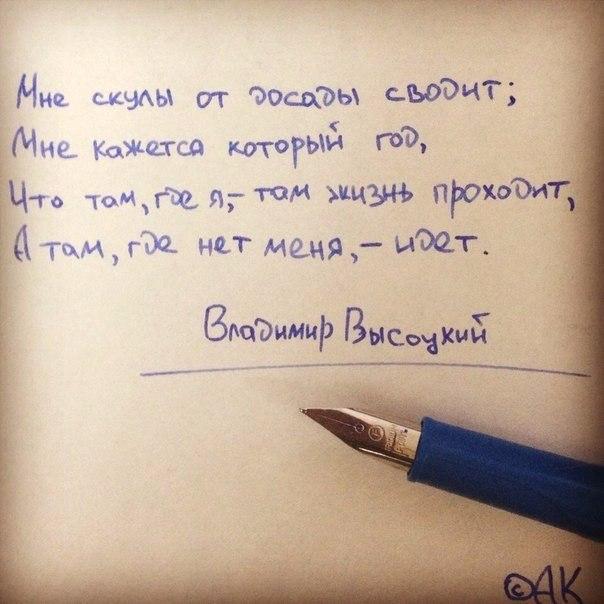 Мне скулы от досады сводит;
Мне кажется который год,
Что там, где я,- там жизнь проходит,
А там, где нет меня, – идет.
Владимир Высоцкий
©АК